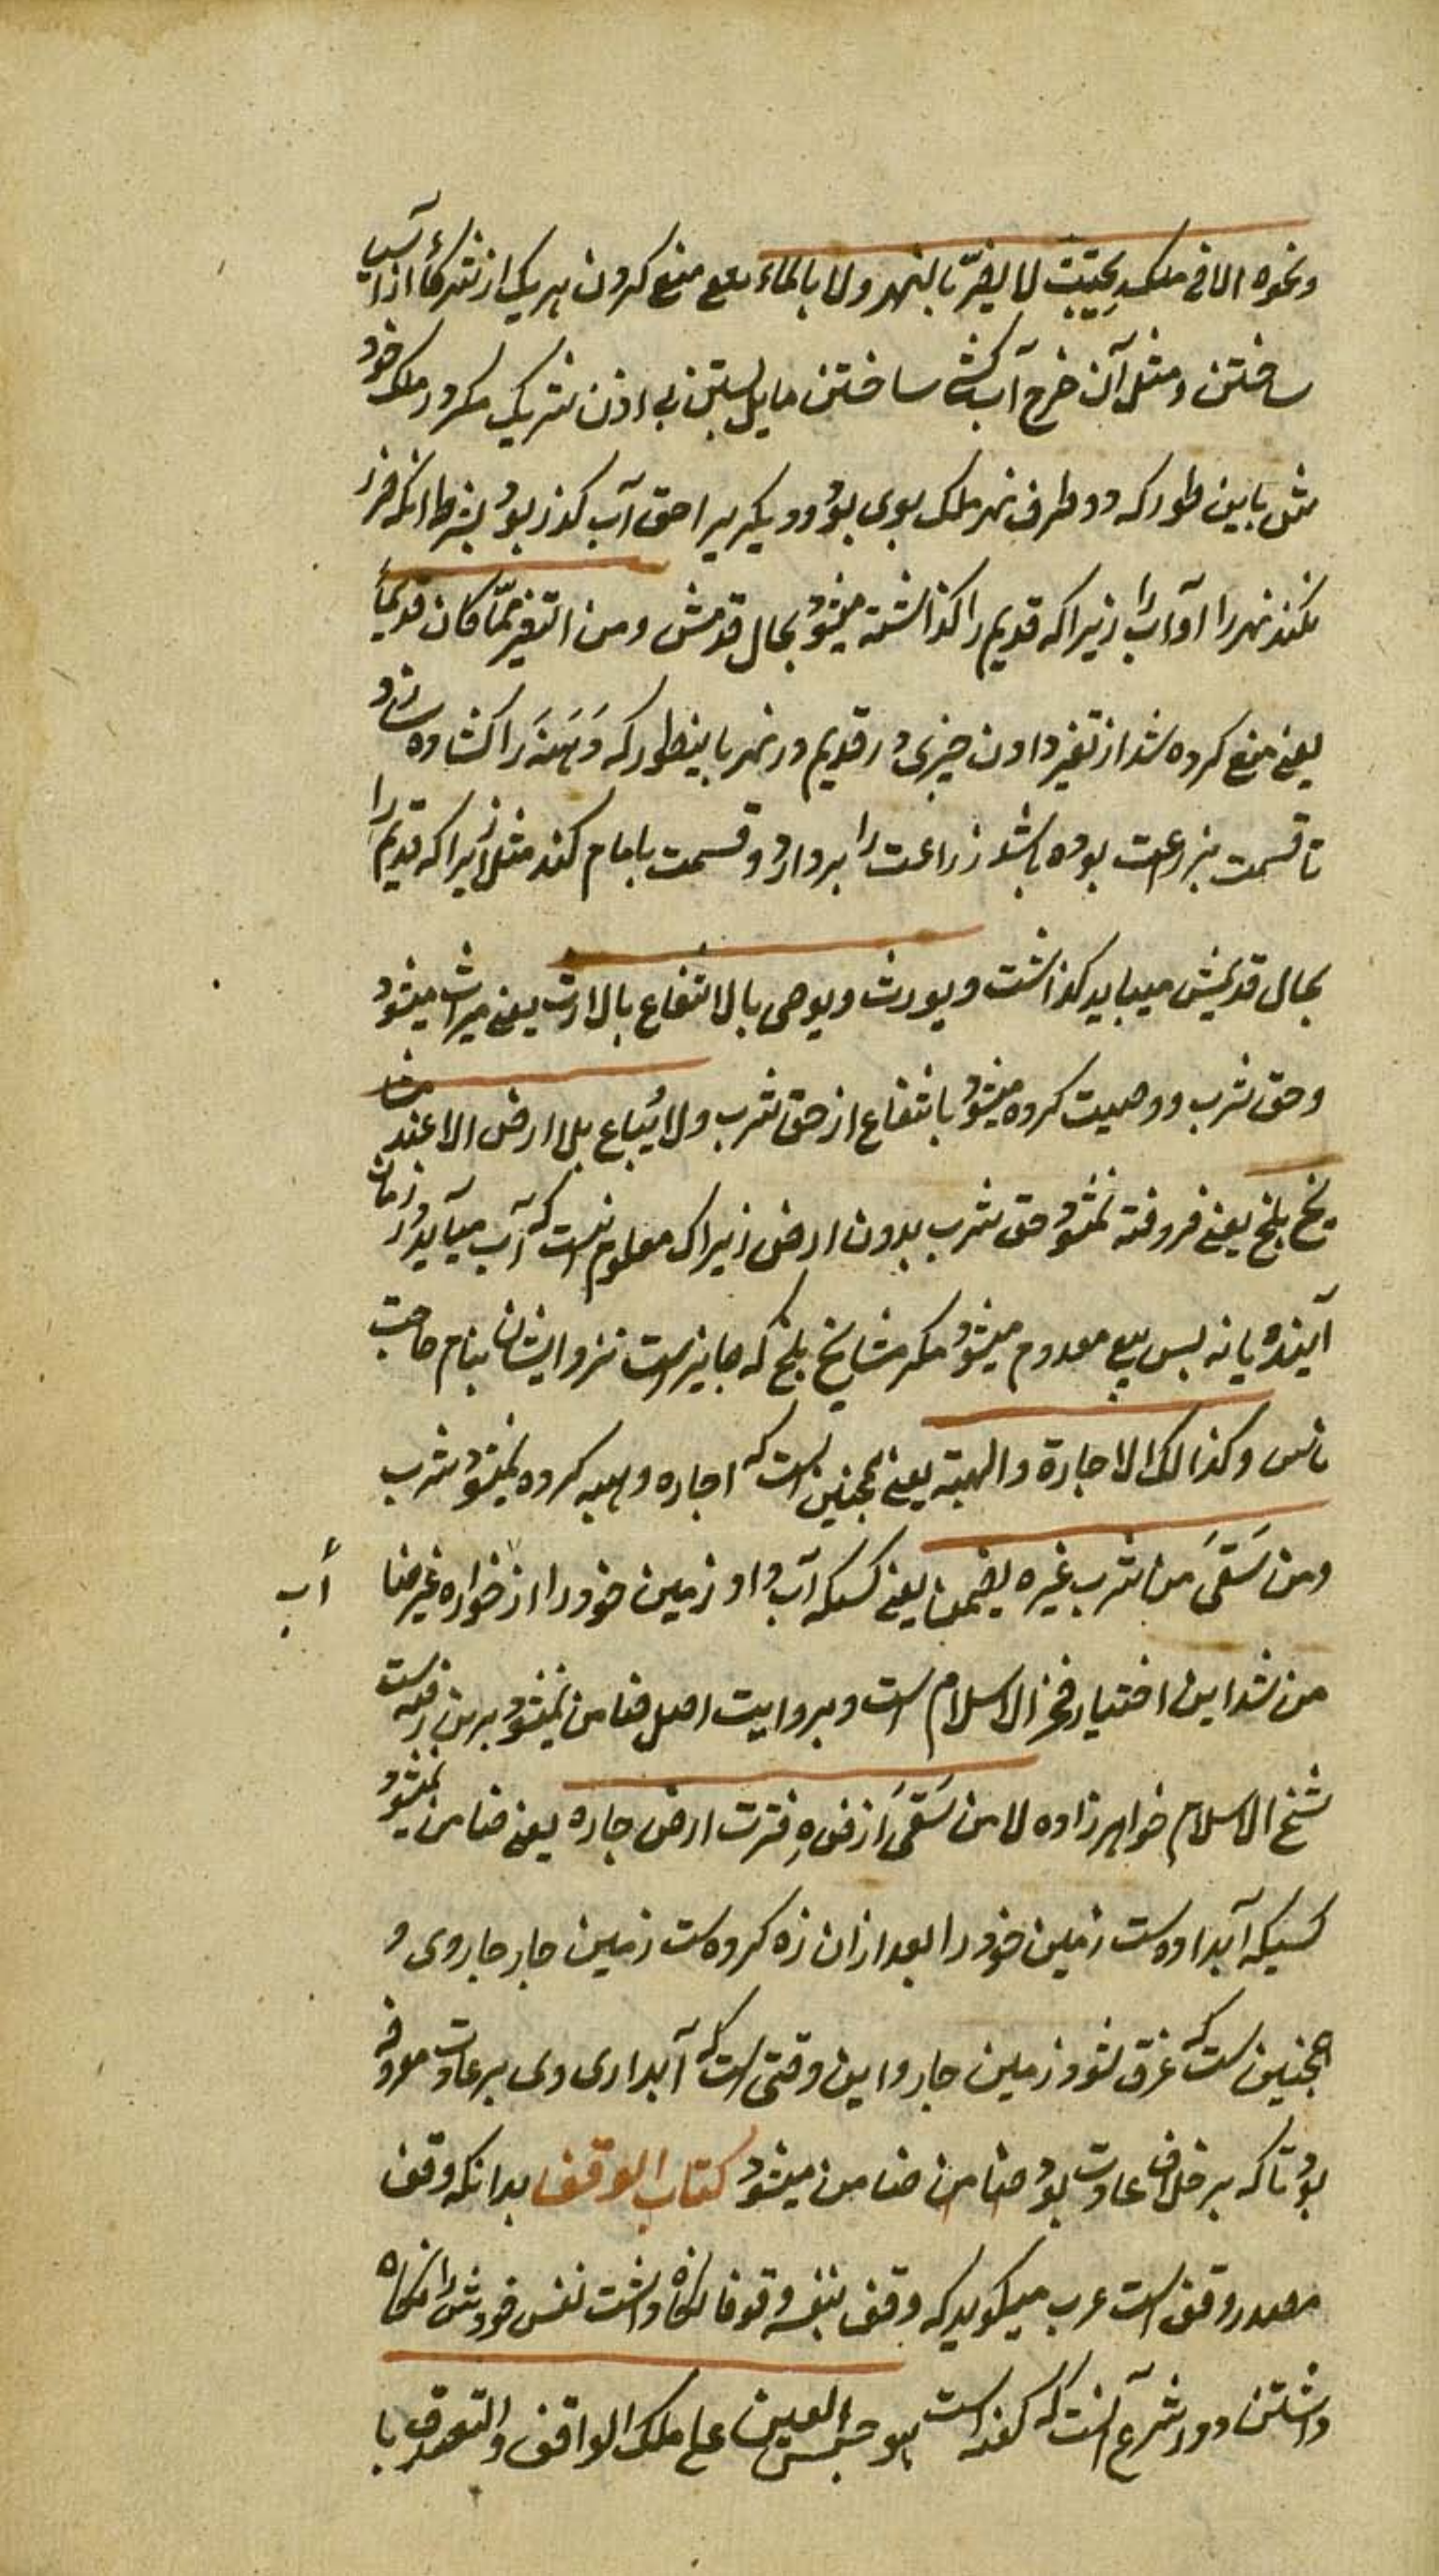 ونحوه الا فی ملکه بحیث لا یضر بالنهر ولا بالماء یعنی منع کردن هریک از شرکاء از آسیا
ساختن و مثل آن خرج آب کشی ساختن یا پل بستن بی اذن شریک مکر در ملک خود
مثل باین طور که دو طرف نهر ملک بوی بود و دیکریرا حق آب کذر بود بشرط آنکه ضرر
نکند نهر را و آب را زیرا که قدیم را کذاشته میشود بحال قدمش ومن التغیر عما کان قدیما
یعنی منع کرده شد از تغیر دادن چیزی در قدیم در نهر باینطور که دَهَنَه را کشاده سازد
تا قسمت بزراعت بوده باشد زراعت را بردارد و قسمت بایام کند مثل زیرا که قدیم را
بحال قدیمش میباید کذاشت ویورث ویوصی بالانتفاع بالارث یعنی میراث میشود
وحق شرب و وصیت کرده میشود بانتفاع از حق شرب ولا یُباع بلا ارض الا عند مشا
یخ بلخ یعنی فروخته نمیشود حق شرب بدون ارض زیراک معلوم نیست که آب میآید در زمان
آینده یا نه بس بیع معدوم میشود مکر مشایخ بلخ که جایز است نزد ایشان بنام حاجت
ناس وکذالک الاجارة والهبة یعنی همچنین است که اجاره و هبه کرده نمیشود شرب
ومن سَقَی من شرب غیره یضمن یعنی کسیکه آب داد زمین خود را از خوراره غیر ضا
آب
من شد این اختیار فخر الاسلام است و بروایت اصل ضامن نمیشود برین رفته است
شیخ الاسلام خواهرزاده لا من سَقَی ارضه فنزت ارض جاره یعنی ضامن نمیشود
کسیکه آبداده است زمین خود را بعد ازان زه کرده است زمین جار جاروی و
همچنین است که غرق شود زمین جار و این وقتی است که آبداری وی بر عادت معروفه
بود تا که بر خلاف عادت بود ضامن ضامن میشود کتاب الوقف بدانکه وقف
مصدر وقف است عرب میکوید که وقف بنفسه وقوفا نکاه داشت نفس خودش را نکاه
داشتن و در شرع آنست که کفته است هو حبس العین علی ملک الواقف والتصدق با